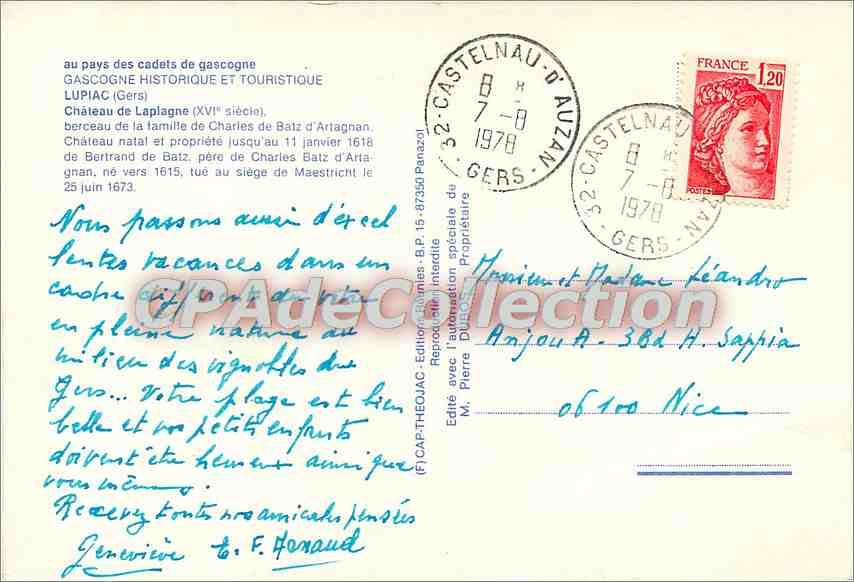 au pays des cadets de gascogne
GASCOGNE HISTORIQUE ET TOURISTIQUE
LUPIAC (Gers)
Château de Laplagne (XVIe siècle),
berceau de la famille de Charles de Batz d'Artagnan.
Château natal et propriété jusqu'au 11 janvier 1618
de Bertrand de Batz, père de Charles Batz d'Arta-
gnan, né vers 1615, tué au siège de Maestricht le
25 juin 1673.
Nous passons aussi d'excel
lentes vacances dans un
cadre différent du vôtre
en pleine nature au
milieu des vignobles du
Gers... Votre plage est bien
belle et vos petits enfants
doivent être heureux ainsi que
vous mêmes.
Recevez toutes nos amicales pensées
Geneviève E. F. Arnaud
(F) CAP-THEOJAC - Editions Réunies - B.P. 15 - 87350 Panazol
Reproduction interdite
Edité avec l'autorisation spéciale de
M. Pierre DUBOS, Propriétaire
32 - CASTELNAU-D'AUZAN -
8 H
7 - 8
1978
GERS
32 - CASTELNAU AUZAN -
8 H
7 - 8
1978
GERS
FRANCE
1,20
POSTES
Monsieur et Madame Léandro
Anjou A - 3 Bd H. Sappia
06100 Nice
CPADeCollection